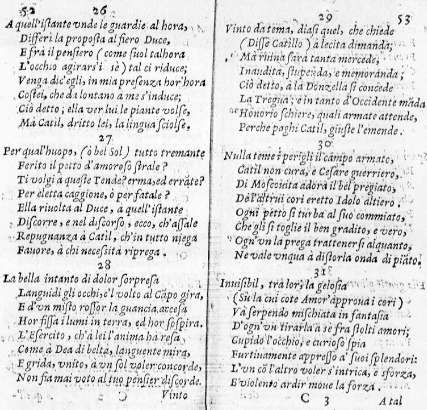 52
26
A quell'istante unde le guardie al hora,
Differì la proposta al fiero Duce,
E frà il pensiero (come suol talhora
L'occhio agirars'ì sè) tal ci riduce;
Venga dic'egli, in mia presenza hor'hora
Costei, che da lontano à me s'induce;
Ciò detto; ella ver lui le piante volse,
Mà Catil, dritto lei, la lingua sciolse.
27
Per qual'huopo, (ò bel Sol) tutto tremante
Ferito il petto d'amoroso strale?
Ti volgi a queste Tende? erma, ed errate?
Per eletta caggione, ò per fatale?
Ella rivolta al Duce, a quell'istante
Discorre, e nel discorso, ecco, ch'assale
Repugnanza à Catil, ch'in tutto niega
Favore, à chi necessità riprega.
28
La bella intanto di dolor sorpresa
Languidi gli occhi, e'l volto al Cāpo gira,
E d'un misto rossor la guancia, accesa
Hor fissa i lumi in terra, ed hor sospira,
L'Esercito, ch'à lei l'anima hà resa,
Come à Dea di beltà, languente mira,
E grida, unito, à un sol voler concorde,
Non fia mai voto al tuo pensier discorde.
C Vinto
29
53
Vinto da tema, diasi quel, che chiede
(Disse Catillo) à lecita dimanda;
Mà ruina sarà tanta mercede,
Inaudita, stupenda, e memoranda;
Ciò detto, à la Donzella si concede
La Tregua; e in tanto d'Occidente māda
Honorio schiere, quali armate attende,
Perche paghi Catil, giuste l'emende.
30
Nulla teme i perigli il campo armato,
Catil non cura, e Cesare guerriero,
Di Moscovita adora il bel pregiato,
De l'altrui cori eretto Idolo altiero.
Ogni petto si turba al suo commiato,
Che gli si toglie il ben gradito, e vero,
Ogn'un la prega trattenersi alquanto,
Ne vale unqua à distorla onda di piāto,
31
Invisibil, trà lor, la gelosia
(Su la cui cote Amor approua i cori)
Và serpendo mischiata in fantasia
D'ogn'un tirarla à sè frà stolti amori;
Cupido l'occhio, e curioso spia
Furtiuamente appresso a' suoi splendori:
L'un cō l'altro voler s'intrica, e sforza,
E violento ardir moue la forza.
C 3 A tal